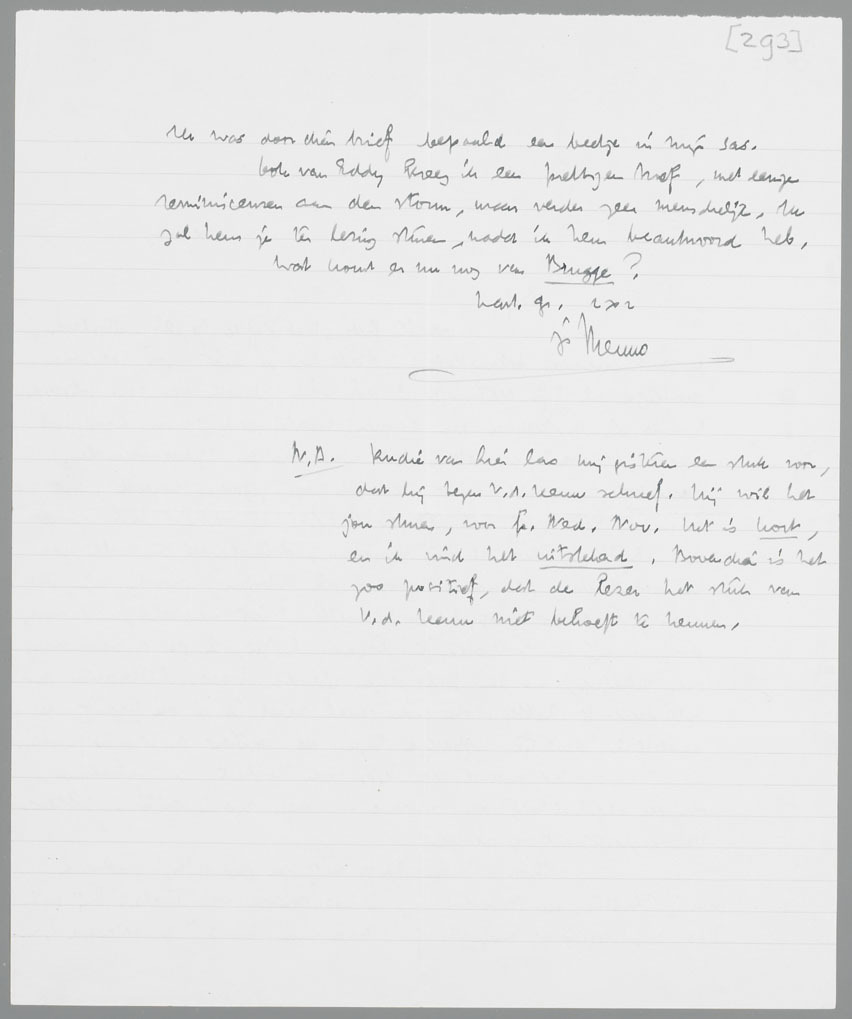 [293]
Ik was door dien brief bepaald een beetje in mijn sas.
Ook van Eddy kreeg ik een prettigen brief, met eenige
reminiscenzen aan den storm, maar verder zeer menschelijk. Ik
zal hem je ter lezing sturen, nadat ik hem beantwoord heb.
Wat komt er nu nog van Brugge?
hart. gr. 2x2
je Menno
N.B. Rudie van Lier las mij gisteren een stuk voor,
dat hij tegen V.d. Leeuw schreef. Hij wil het
jou sturen, voor Gr. Ned. Nov. Het is kort,
en ik vind het uitstekend. Bovendien is het
zoo positief, dat de lezer het stuk van
V.d. Leeuw niet behoeft te kennen.